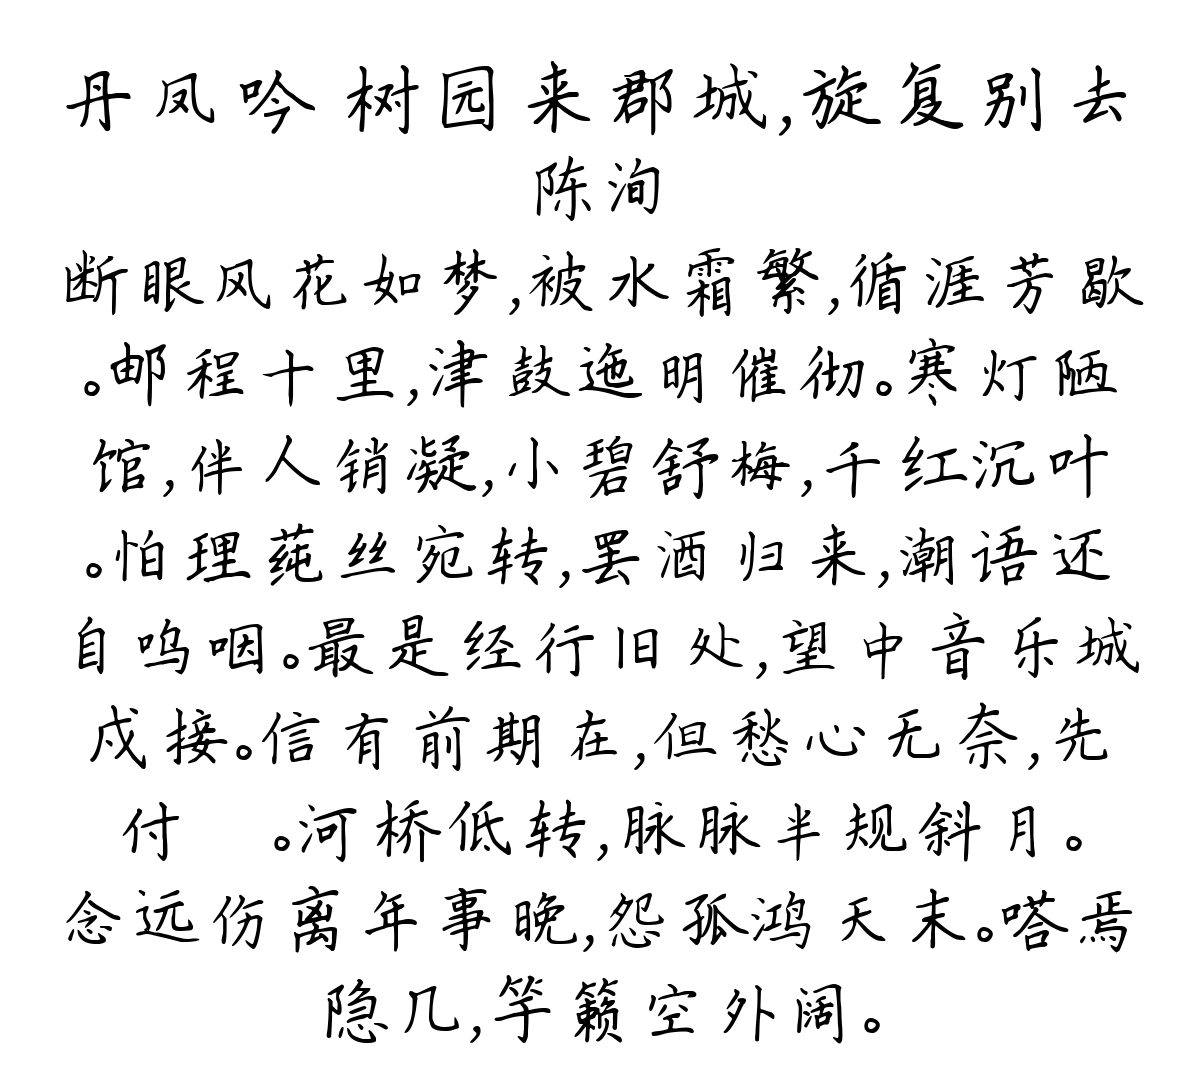 丹凤吟 树园来郡城,旋复别去
陈洵
断眼风花如梦,被水霜繁,循涯芳歇
。邮程十里,津鼓迤明催彻。寒灯陋
馆,伴人销凝,小碧舒梅,千红沉叶
。怕理莼丝宛转,罢酒归来,潮语还
自呜咽。最是经行旧处,望中音乐城
戍接。信有前期在,但愁心无奈,先
付　。河桥低转,脉脉半规斜月。
念远伤离年事晚,怨孤鸿天末。嗒焉
隐几,竽籁空外阔。